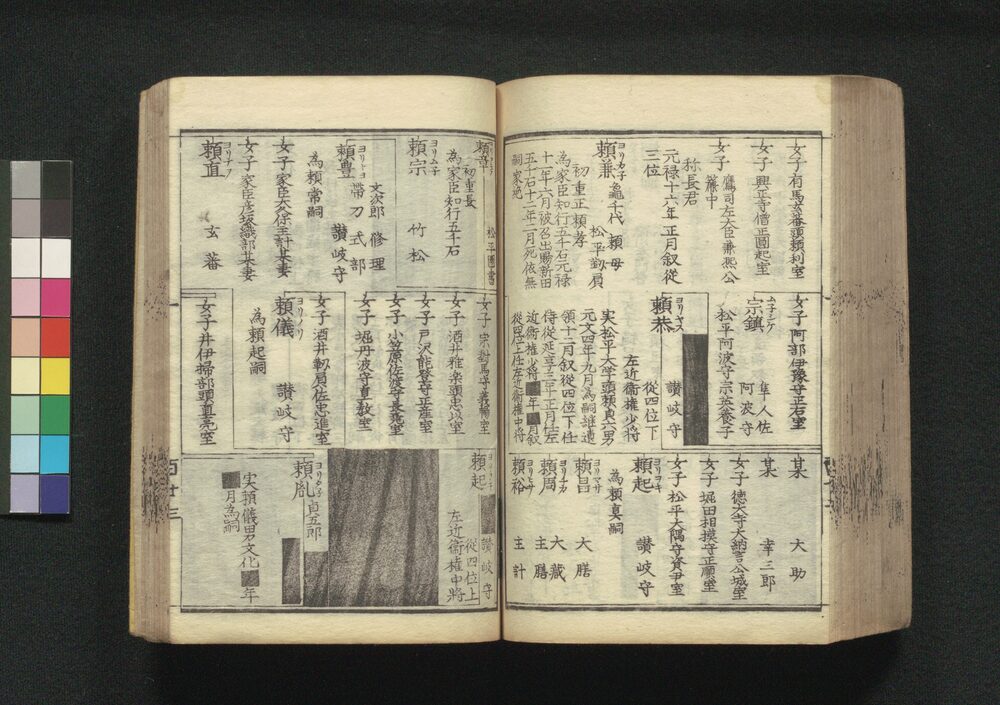 女子 有馬玄蕃頭頼利室
女子 興正寺僧正圓超室
女子 鷹司左大臣兼熙公
簾中
称長君
元禄十六年正月叙従
三位
ヨリカ子
頼兼 亀千代 頼母
松平靱負
初重正頼孝
為家臣知行五千石元禄
十年六月被召出賜新田
五千石十二年二月死依無
嗣家絶
女子 阿部伊豫守正右室
ム子シケ
宗鎮 隼人佐
阿波守
松平阿波守宗英養子
ヨリヤス
頼恭 讃岐守
従四位下
左近衛権少将
実松平大学頭頼貞六男
元文四年九月為嗣継遺
領十二月叙従四位下任
侍従延享三年正月任左
近衛権少将 年 月叙
従四位上任左近衛権中将
某 大助
某 幸三郎
女子 徳大寺大納言公城室
女子 堀田相模守正順室
女子 松平大隅守資尹室
ヨリヲキ
頼起 讃岐守
為頼真嗣
ヨリマサ
頼昌 大膳
ヨリチカ
頼周 大蔵
主膳
ヨリヒサ
頼裕 主計
頼章 松平圖書
初重長
為家臣知行五千石
ヨリム子
頼宗 竹松
ヨリトヨ
頼豊 文次郎 修理
帯刀 式部
讃岐守
為頼常嗣
女子 家臣大久保主計某妻
女子 家臣彦坂織部某妻
ヨリナヲ
頼直 玄蕃
女子 宗對馬守義暢室
女子 酒井雅楽頭忠以室
女子 戸沢能登守正産室
女子 小笠原佐渡守長堯室
女子 堀丹波守直教室
女子 酒井靱負佐忠進室
ヨリノリ
頼儀 讃岐守
為頼起嗣
女子 井伊掃部頭直亮室
頼起 讃岐守
従四位上
左近衛権中将
ヨリタ子
頼胤 貞五郎
実頼儀男文化 年
月為嗣
百廿三